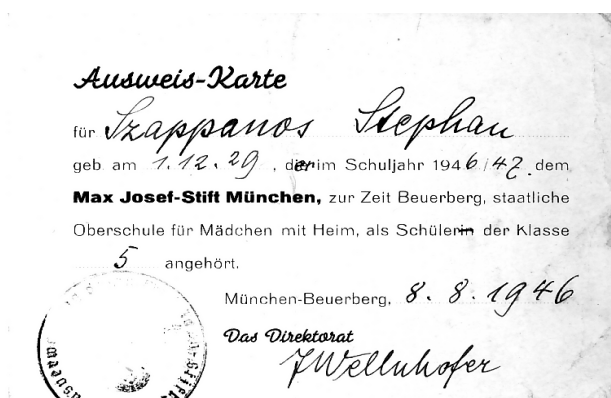 Ausweis-Karte
für Szappanos Stephan
geb am 1.12.29, der im Schuljahr 1946/47 dem
Max Josef-Stift München, zur Zeit Beuerberg, staatliche
Oberschule für Mädchen mit Heim, als Schüler der Klasse
5 angehört.
München-Beuerberg, 8. 8. 1946
Das Direktorat
JWellnhofer